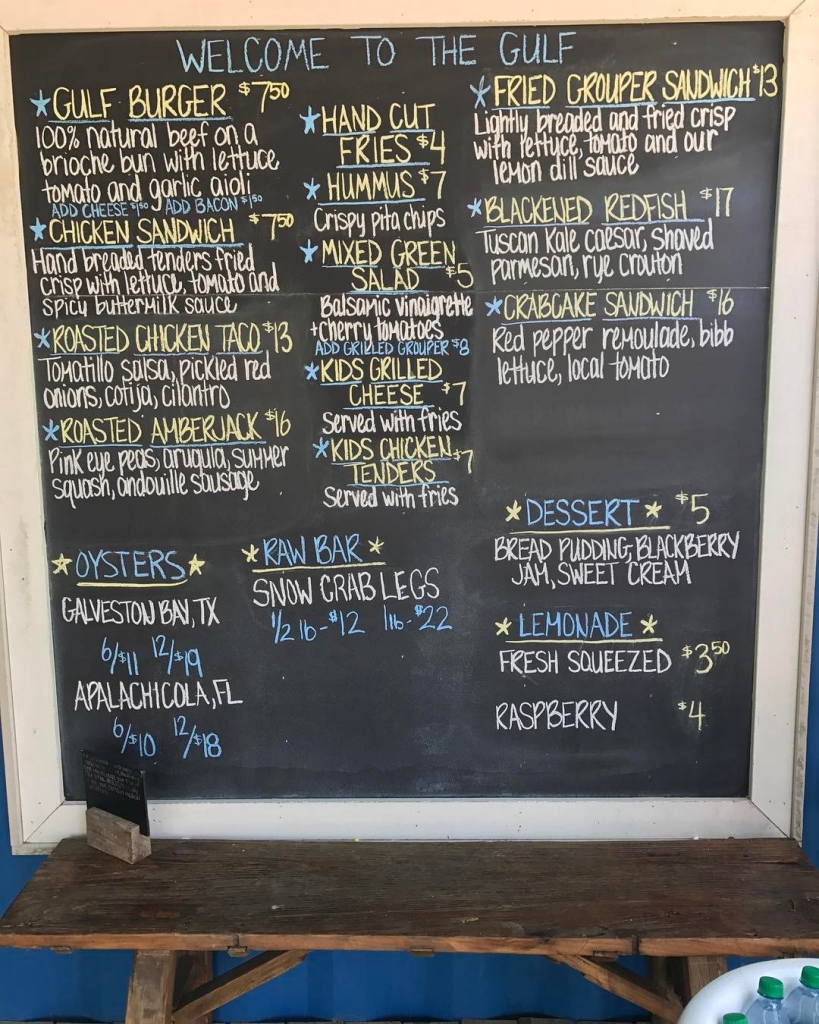 WELCOME TO THE GULF
GULF BURGER $7.50
100% natural beef on a
brioche bun with lettuce
tomato and garlic aioli
ADD CHEESE $1.50 ADD BACON $1.50
CHICKEN SANDWICH $7.50
Hand breaded tenders fried
crisp with lettuce, tomato and
spicy buttermilk sauce
ROASTED CHICKEN TACO $13
Tomatillo salsa, pickled red
onions, cotija, cilantro
ROASTED AMBERJACK $16
Pink eye peas, arugula, summer
squash, andouille sausage
HAND CUT
FRIES $4
HUMMUS $7
Crispy pita chips
MIXED GREEN
SALAD $5
Balsamic vinaigrette
+cherry tomatoes
ADD GRILLED GROUPER $8
KIDS GRILLED
CHEESE $7
Served with fries
KIDS CHICKEN
TENDERS $7
Served with fries
FRIED GROUPER SANDWICH $13
Lightly breaded and fried crisp
with lettuce, tomato and our
lemon dill sauce
BLACKENED REDFISH $17
Tuscan Kale caesar, Shaved
parmesan, rye crouton
CRABCAKE SANDWICH $16
Red pepper remoulade, bibb
lettuce, local tomato
OYSTERS
GALVESTON BAY, TX
6/$11 12/$19
APALACHICOLA, FL
6/$10 12/$18
RAW BAR
SNOW CRAB LEGS
1/2 lb - $12 1 lb - $22
DESSERT $5
BREAD PUDDING, BLACKBERRY
JAM, SWEET CREAM
LEMONADE
FRESH SQUEEZED $3.50
RASPBERRY $4